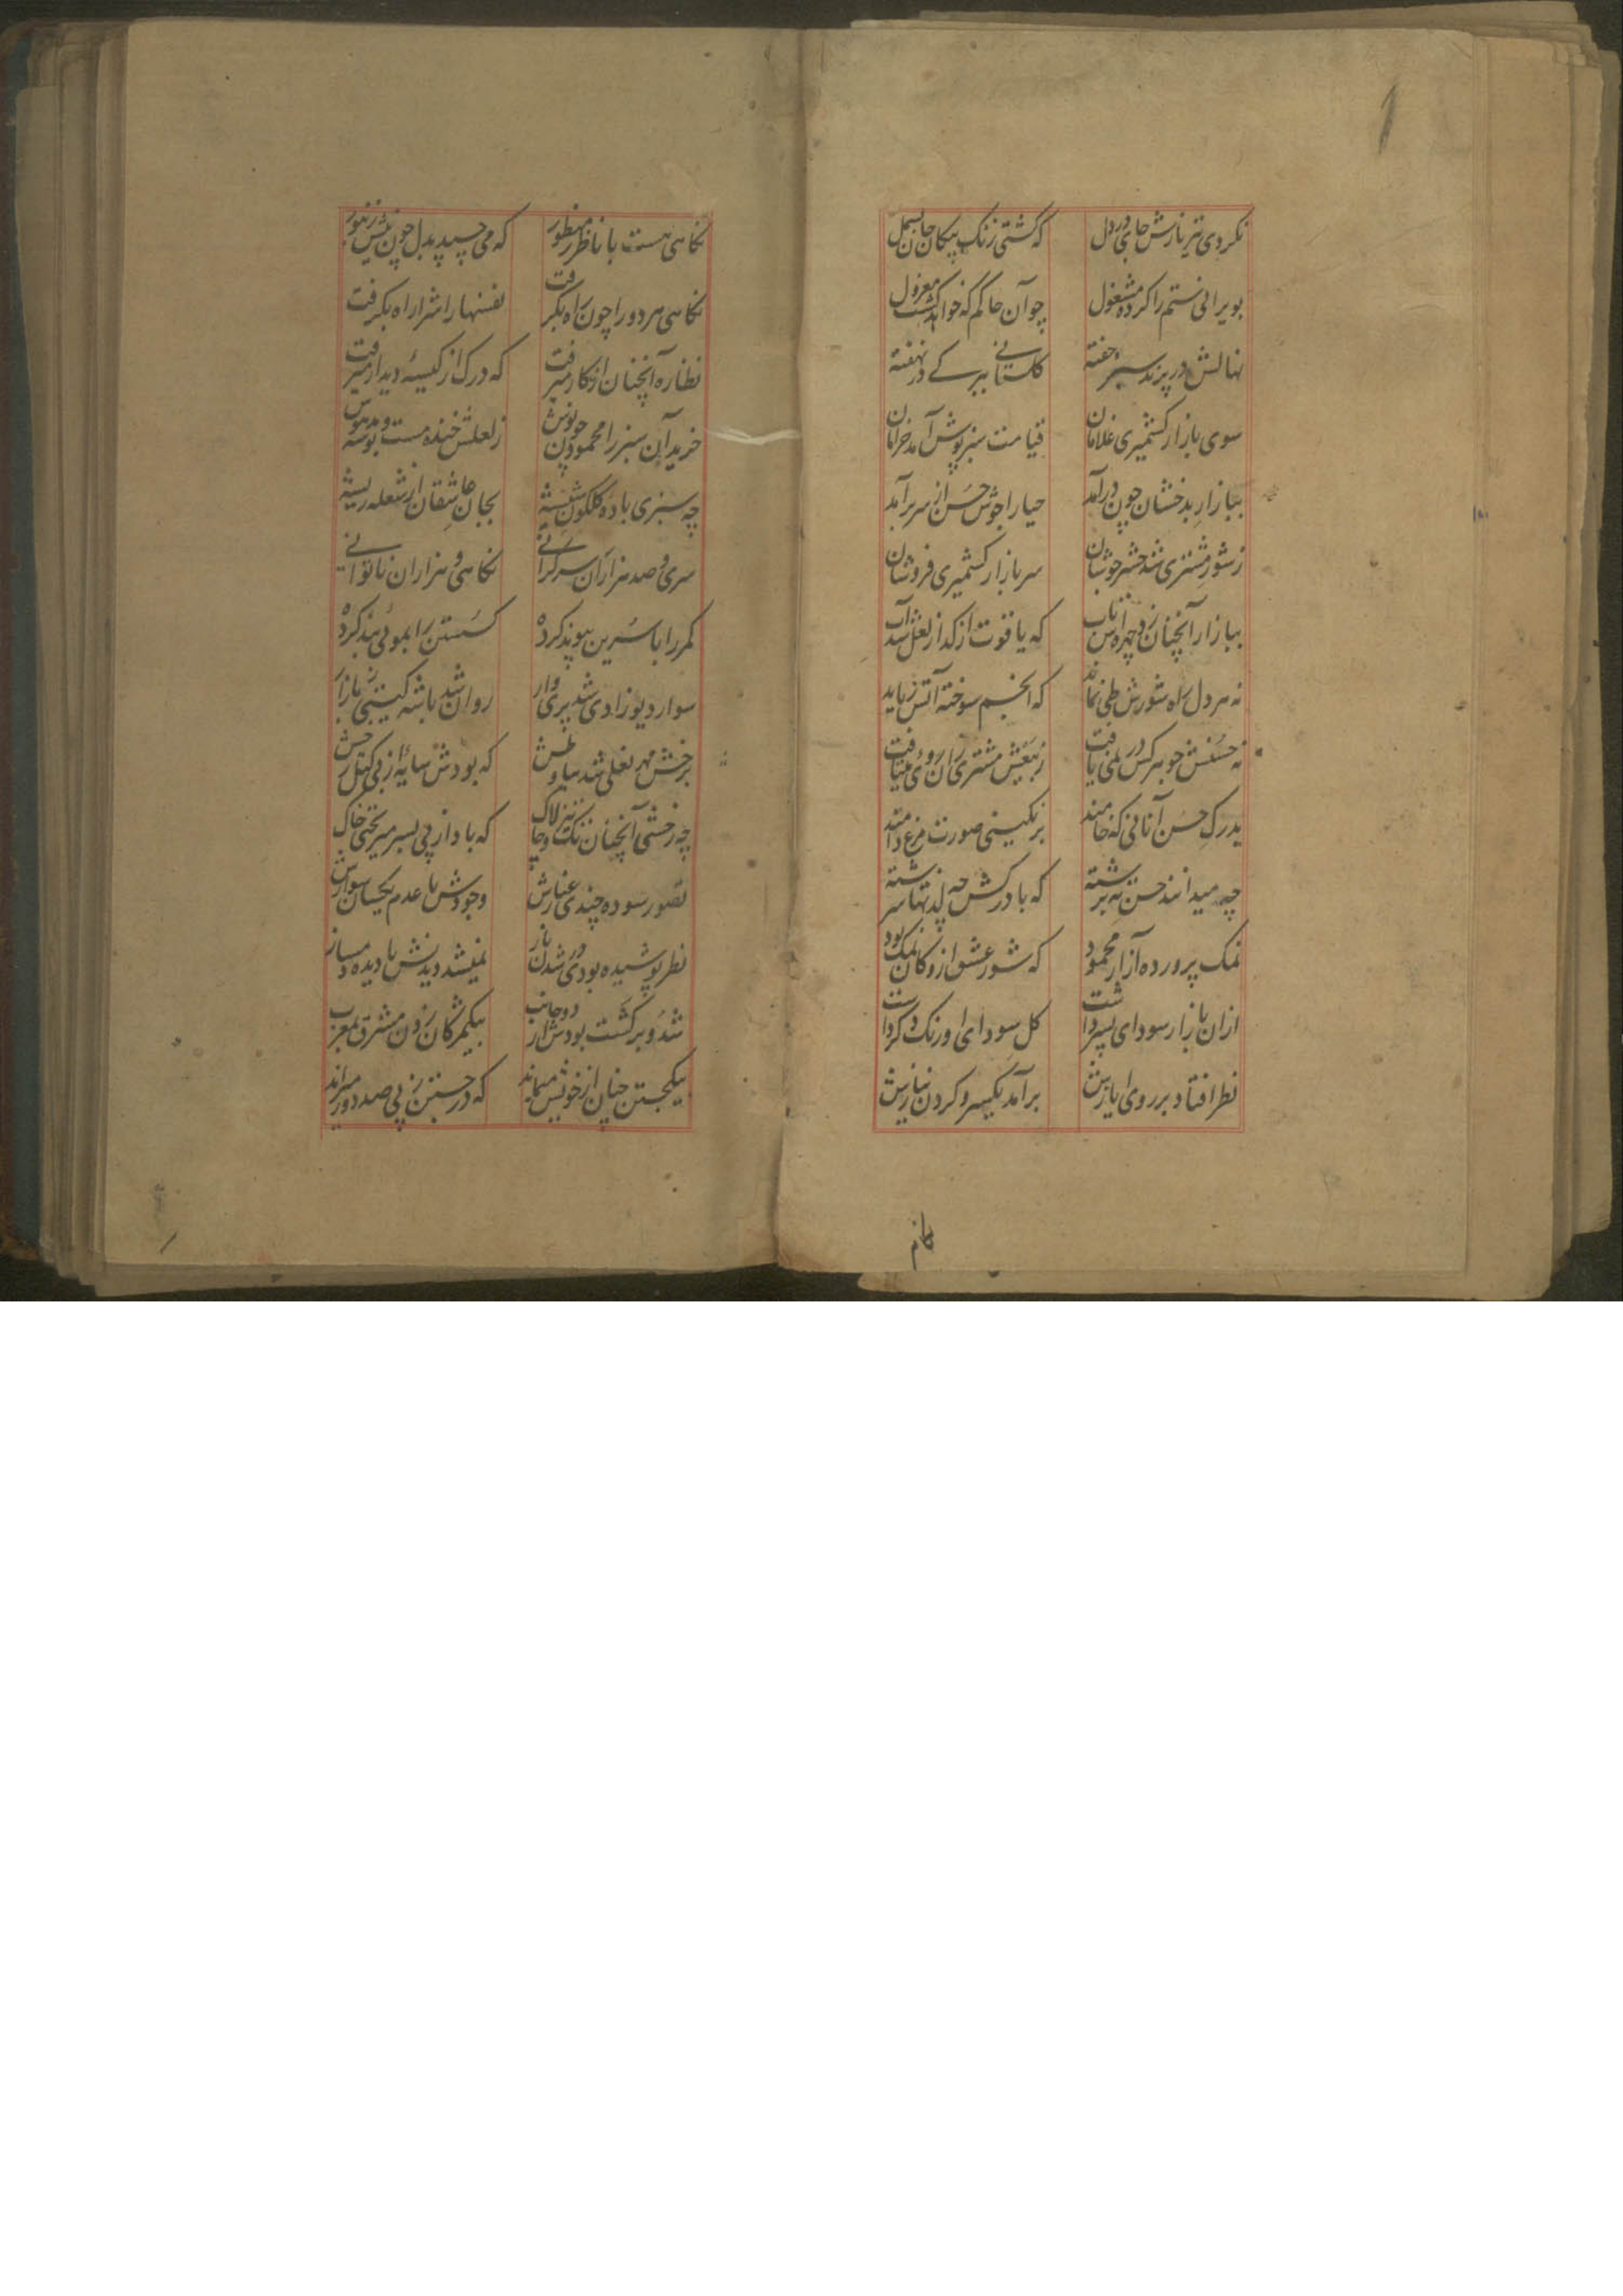 نکردی تیر نازش جای در دل که گشتی زنک پیکان جان بسمل
بویرانی ستم را کرده مشغول چو آن حاکم که خواهد گشت معزول
نهالش در پرند سبز خفته کلستانی ببرکے در نهفته
سوی بازار کشمیری غلامان قیامت سبزپوش آمد خرامان
ببازار بدخشان چون درآمد حیا را جوش حسن از سر برآمد
ز شور مشتری شد حشر جوشان سر بازار کشمیری فروشان
ببازار آنچنان زد چهره اش تاب که یاقوت از کداز لعل شد آب
نه هر دل راه شورش طی نماند که انجم سوخته آتش رباید
نه حسنش جوهر کس در نمی یافت ز بیعش مشتری زان روی میتافت
بدرک حسن آنانی که خامند برنکینی صورت مرغ دامند
چه میدانند حسن ته برشته که با درکش چه لذتها سرشته
نمک پرورده آزار محمود که شور عشق ازو کان نمک بود
ازان بازار سودای پسر داشت کل سودای او رنک دکر داشت
نظر افتاد بر روی ایازش برآمد یکسر و کردن نیازش
نکاهی هست با ناظر ز منظور که می چسپد بدل چون نیش زنبور
نکاهی هر دو را چون راه بکرفت نفسها را شرار راه بکرفت
نظاره آنچنان از کار میرفت که درک از کیسهٔ دیدار میرفت
خرید آن سبز را محمود پرجوش ز لعلش خنده مست و بوسه مدهوش
چه سبزی بادهٔ کلکون بشیشه بجان عاشقان از شعله ریشه
سری و صد هزاران سرکرانی نکاهی و هزاران ناتوانی
کمر را با سرین پیوند کرده کسستن را بموئی بند کرده
سوار دیوزادی شد پری وار روان شد باشه کیتی ز بازار
برخش مهر نعلی شد سیاوش که بودش سایهٔ از پی کتل رخش
چه رخشی آنچنان تیزتک و چالاک که باد از پی بسر میریختی خاک
تصور سوده چندی عنانش وجودش با عدم یکسان سوارش
نظر پوشیده بودی در شدن باز نمیشد دیدنش با دیده دمساز
شد و برکشت بودش از دو جانب بیکمژکان زدن مشرق بمغرب
بیکجستن چنان از خویش میماند که در جستن ز پی صد دور میراند